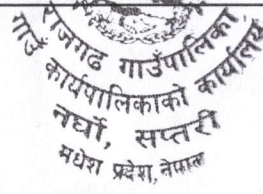 राजगढ गाउँपालिका
गाउँ कार्यपालिकाको कार्यालय
नघों, सप्तरी
मधेश प्रदेश, नेपाल